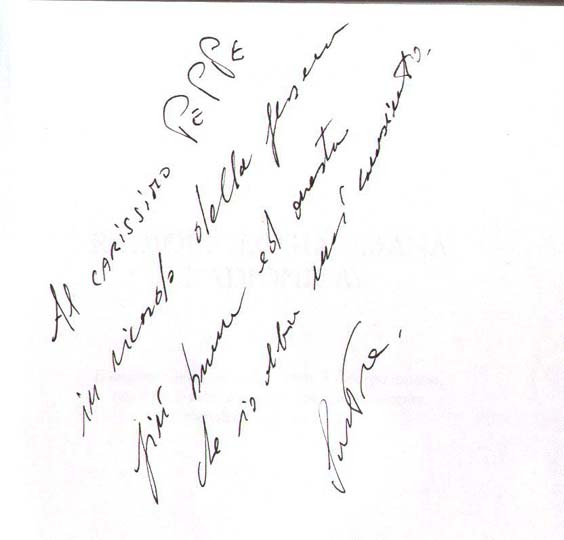 Al CARISSIMO PEPPE
in ricordo della persona
più buona ed onesta
che io abbia mai conosciuto.